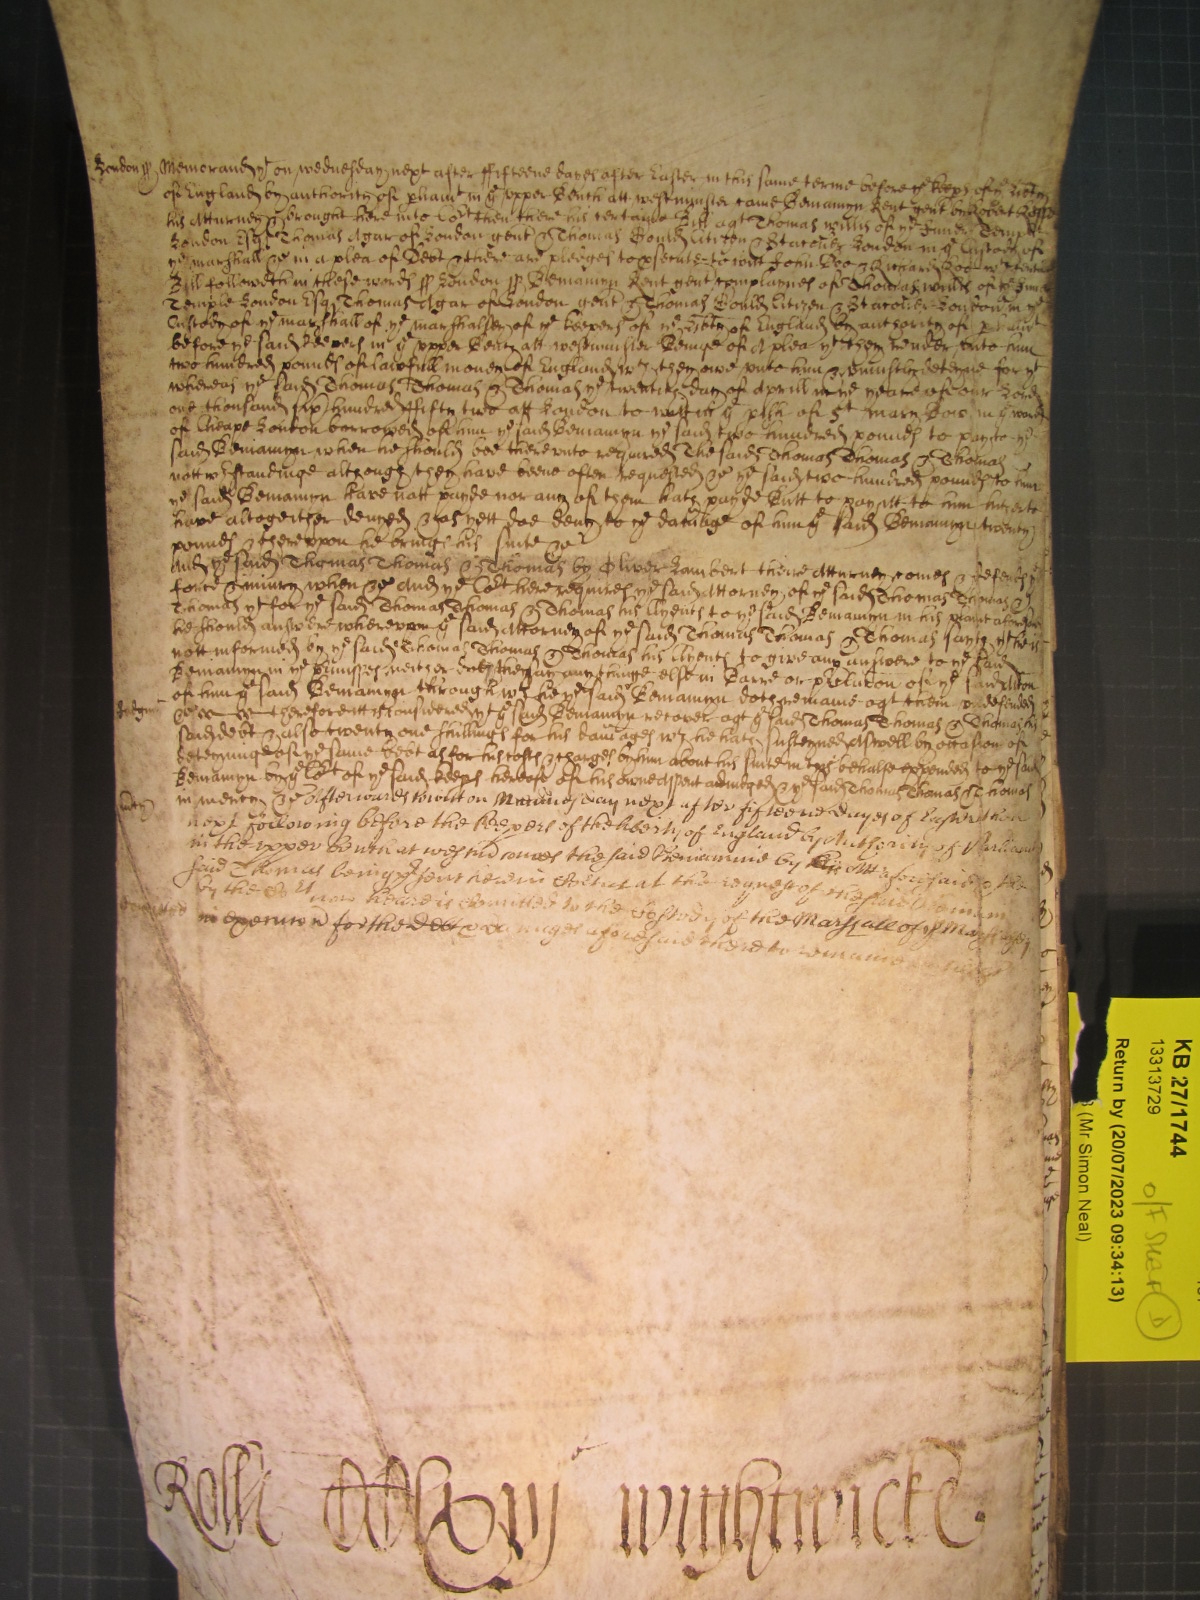 London ss Memorand yt on wednesday next after ffifteene dayes after Easter in this same terme before ye keeps of ye liberty
of England by authority of parliamt in ye upper Bench att westminster came Beniamyn Kent gent by Robert
his Atturney & brought here into Cort then there his certaine Bill agt Thomas Willis of ye Inner Temple
London Esqr Thomas Agar of London gent & Thomas Gould Citizen & Staconer London in ye Custody of
ye marshall &c in a plea of Debt & there are pledges to psecute to witt John Doo & Richard Roo wch certaine
Bill followeth in these words ss London ss Beniamyn Kent gent complaynes of Thomas Willis of ye Inner
Temple London Esqr Thomas Agar of London gent & Thomas Gould Citizen & Staconer London in ye
Custody of ye marshall of ye marshalsey of ye keepers of ye libty of England by authority of parliamt
before ye said keepers in ye upper Bench att westminster Beinge of A plea yt they render unto him
two hundred pounds of lawfull money of England wch they owe unto him & uniustly deteine for yt
whereas ye said Thomas Thomas & Thomas ye twentieth day of Aprill in ye yeare of our Lord
one thousand six hundred ffifty two att London to witt in ye pish of St Mary Bow in ye ward
of Cheape London borrowed of him ye said Beniamyn ye said two hundred pounds to pay to ye
said Beniamyn when he should bee thereunto required The said Thomas Thomas & Thomas
nottwthstandinge although they have beene often requested &c ye said two hundred pounds to him
ye said Beniamyn have nott payde nor any of them hath payde Butt to pay itt to him hitherto
have altogeither denyed & as yett doe deny to ye damage of him ye said Beniamyn twenty
pounds & thereupon he brings his suite &c
And ye said Thomas Thomas & Thomas by Oliver Lambert theire Atturney comes & defends ye
force & iniury when &c And ye Cort here requires ye said Attorney of ye said Thomas Thomas &
Thomas yt for ye said Thomas Thomas & Thomas his Clyents to ye said Beniamyn in his plaint aforesaid
he should answere whereupon ye said Attorney of ye said Thomas Thomas & Thomas sayth yt he is
nott informed by ye said Thomas Thomas & Thomas his Clyents to give any answere to ye said
Beniamyn in ye pmisses neither doth hee say any thinge else in Barre or pclusion of ye said Accon
of him ye said Beniamyn through wch he ye said Beniamyn doth remaine agt them undefended
Judgmt &c therefore itt is Considered yt ye said Beniamyn recover agt ye said Thomas Thomas & Thomas his
said debt & also twenty one shillings for his damages wch he hath susteyned Aswell by occasion of
deteyninge of ye same debt as for his costs & charges by him about his suite in this behalfe expended to ye said
Beniamyn by ye Cort of ye said keeps hereof of his owne assent adiudged & ye said Thomas Thomas & Thomas
in mercy &c Afterwards to witt on Munday next after fifteene dayes of Easter then
next following before the keepers of the liberty of England by Authority of Parliamt
in the upper Bench at westmr comes the said Beniamine by his Att aforesaid & the
said Thomas being psent here in Court at the request of the said Beniamin
by the Cort now heare is Comitted to the Custody of the Marshall of ye Marshalsey
Comitted in execucon for the debt & damages aforesaid there to remaine
Rolle Wightwicke
KB 27/1744
13313729
Return by (20/07/2023 09:34:13)
(Mr Simon Neal)